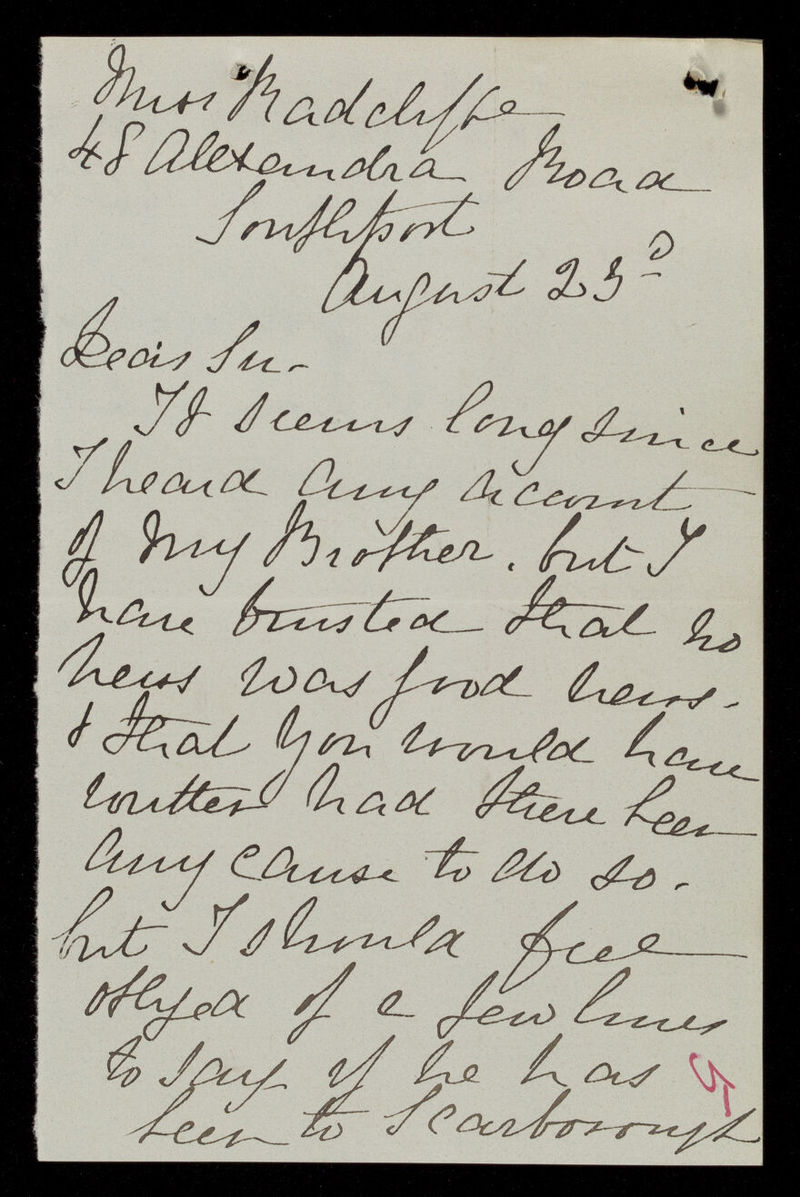 Miss Radcliffe
48 Alexandra Road
Southport
August 23d
Dear Sir -
It seems long since
I heard any account
of my Brother. but I
have trusted that no
news was good news -
& that you would have
written had there been
any cause to do so.
but I should feel
obliged if a few lines
to say if he has
been to Scarborough
5